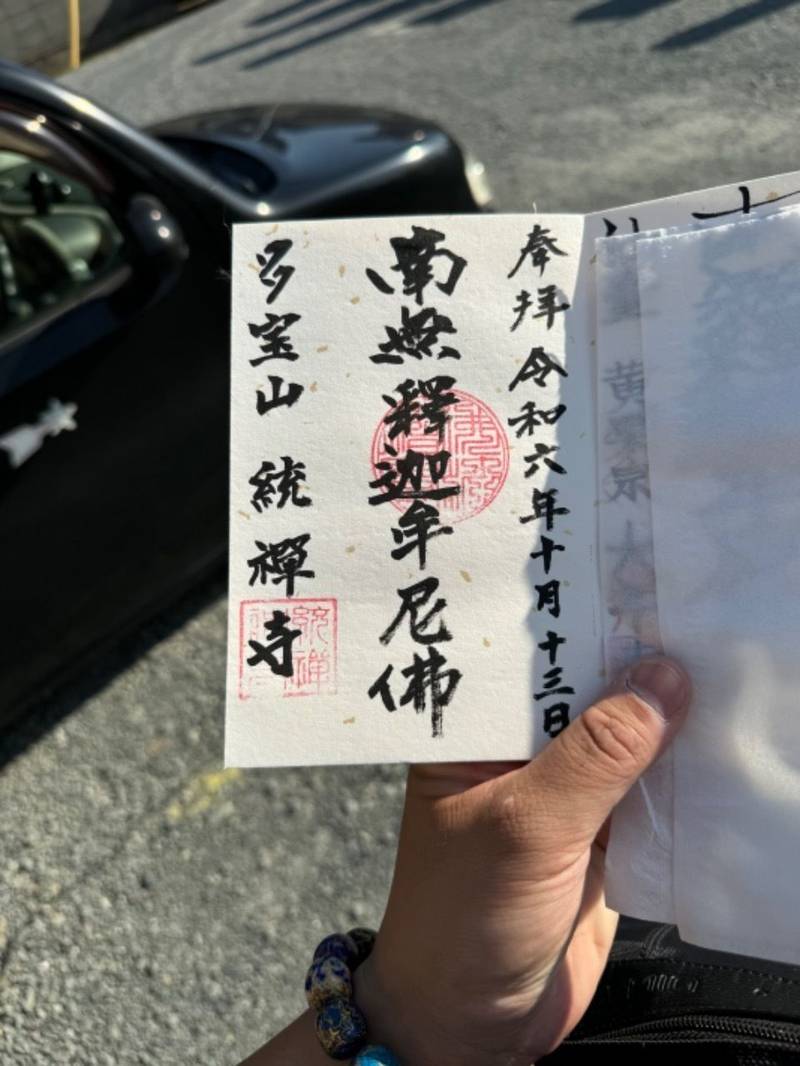 奉拝 令和六年十月十三日
南無釋迦牟尼佛
多宝山 統禪寺
統禅